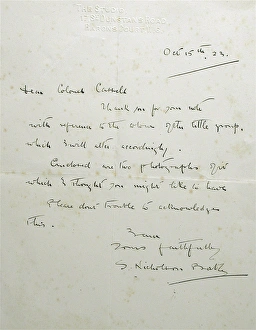 THE STUDIO
Oct 15th. 23.
Dear Colonel
Thank you for your note
with reference to the colour of the little group.
which I will alter accordingly.
Enclosed are two photographs of it
which I thought you might like to have
Please don't trouble to acknowledge
this.
Yours faithfully
S. Nicholson Babb